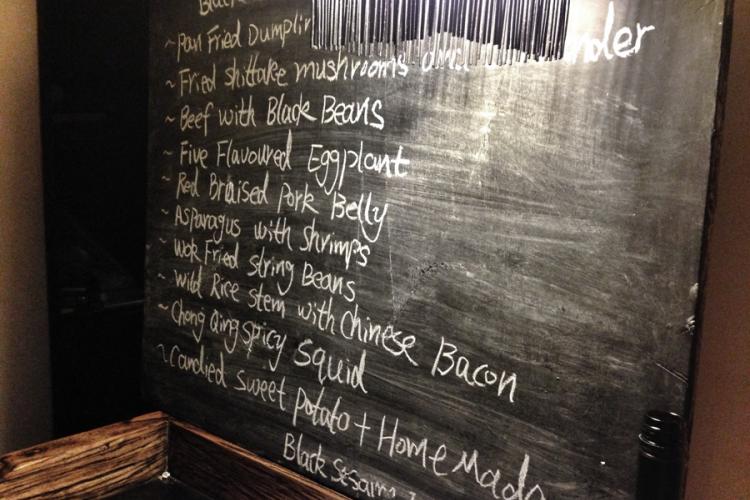 ~ Pan Fried
~ Fried shittake mushrooms
~ Beef with Black Beans
~ Five Flavoured Eggplant
~ Red Braised Pork Belly
~ Asparagus with shrimps
~ Wok Fried string Beans
~ Wild Rice stem with Chinese Bacon
~ Chong Qing spicy squid
~ Candied sweet potato + Home Made
Black